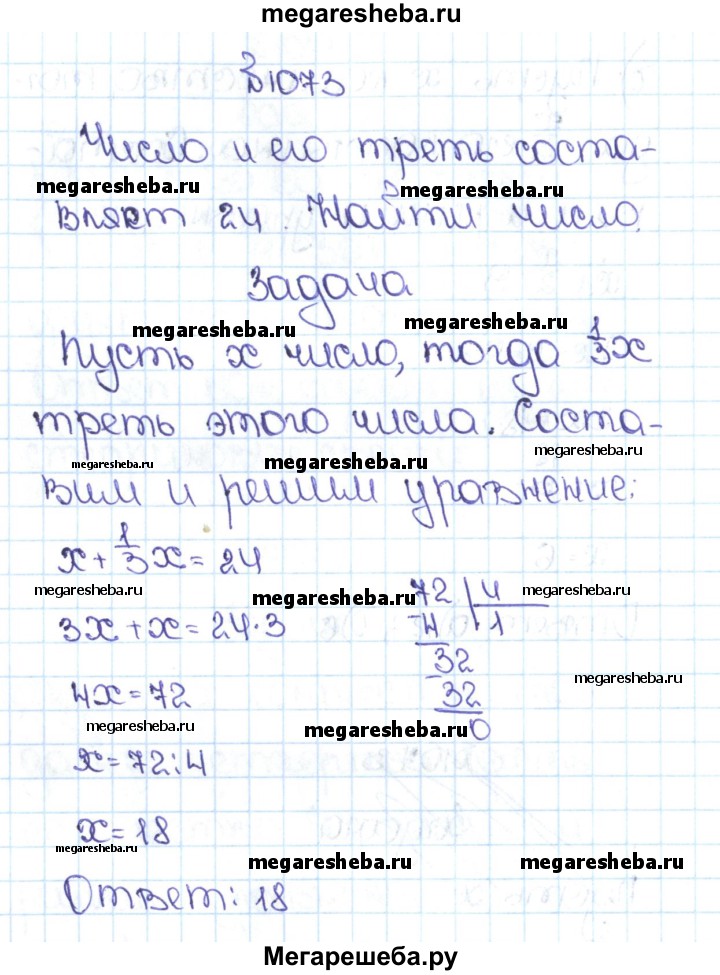 megaresheba.ru
№1073
Число и его треть соста-
megaresheba.ru megaresheba.ru
вляет 24. Найти число.
Задача
megaresheba.ru megaresheba.ru
Пусть x число, тогда 1/3x
треть этого числа. Соста-
megaresheba.ru megaresheba.ru megaresheba.ru
вим и решим уравнение:
x + 1/3x = 24
megaresheba.ru megaresheba.ru megaresheba.ru
72 | 4
3x + x = 24·3 -4 | 1
32
4x = 72 -32 megaresheba.ru
megaresheba.ru megaresheba.ru 0
x = 72:4
x = 18
megaresheba.ru megaresheba.ru megaresheba.ru
Ответ: 18
Мегарешеба.ру